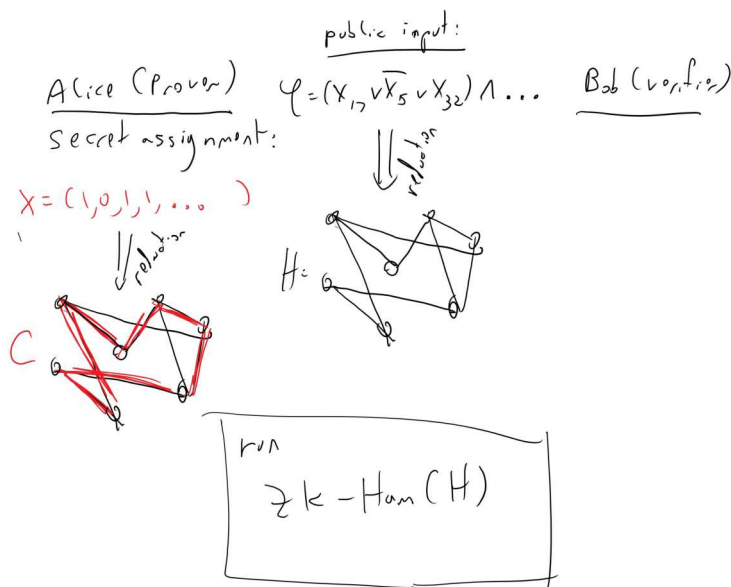 public input:
Alice (Prover)
φ=(X₁₇ ∨ X̅₅ ∨ X₃₂) ∧ ...
Bob (verifier)
secret assignment:
reduction
X = (1,0,1,1,... )
reduction
H=
C
run
zk-Ham(H)